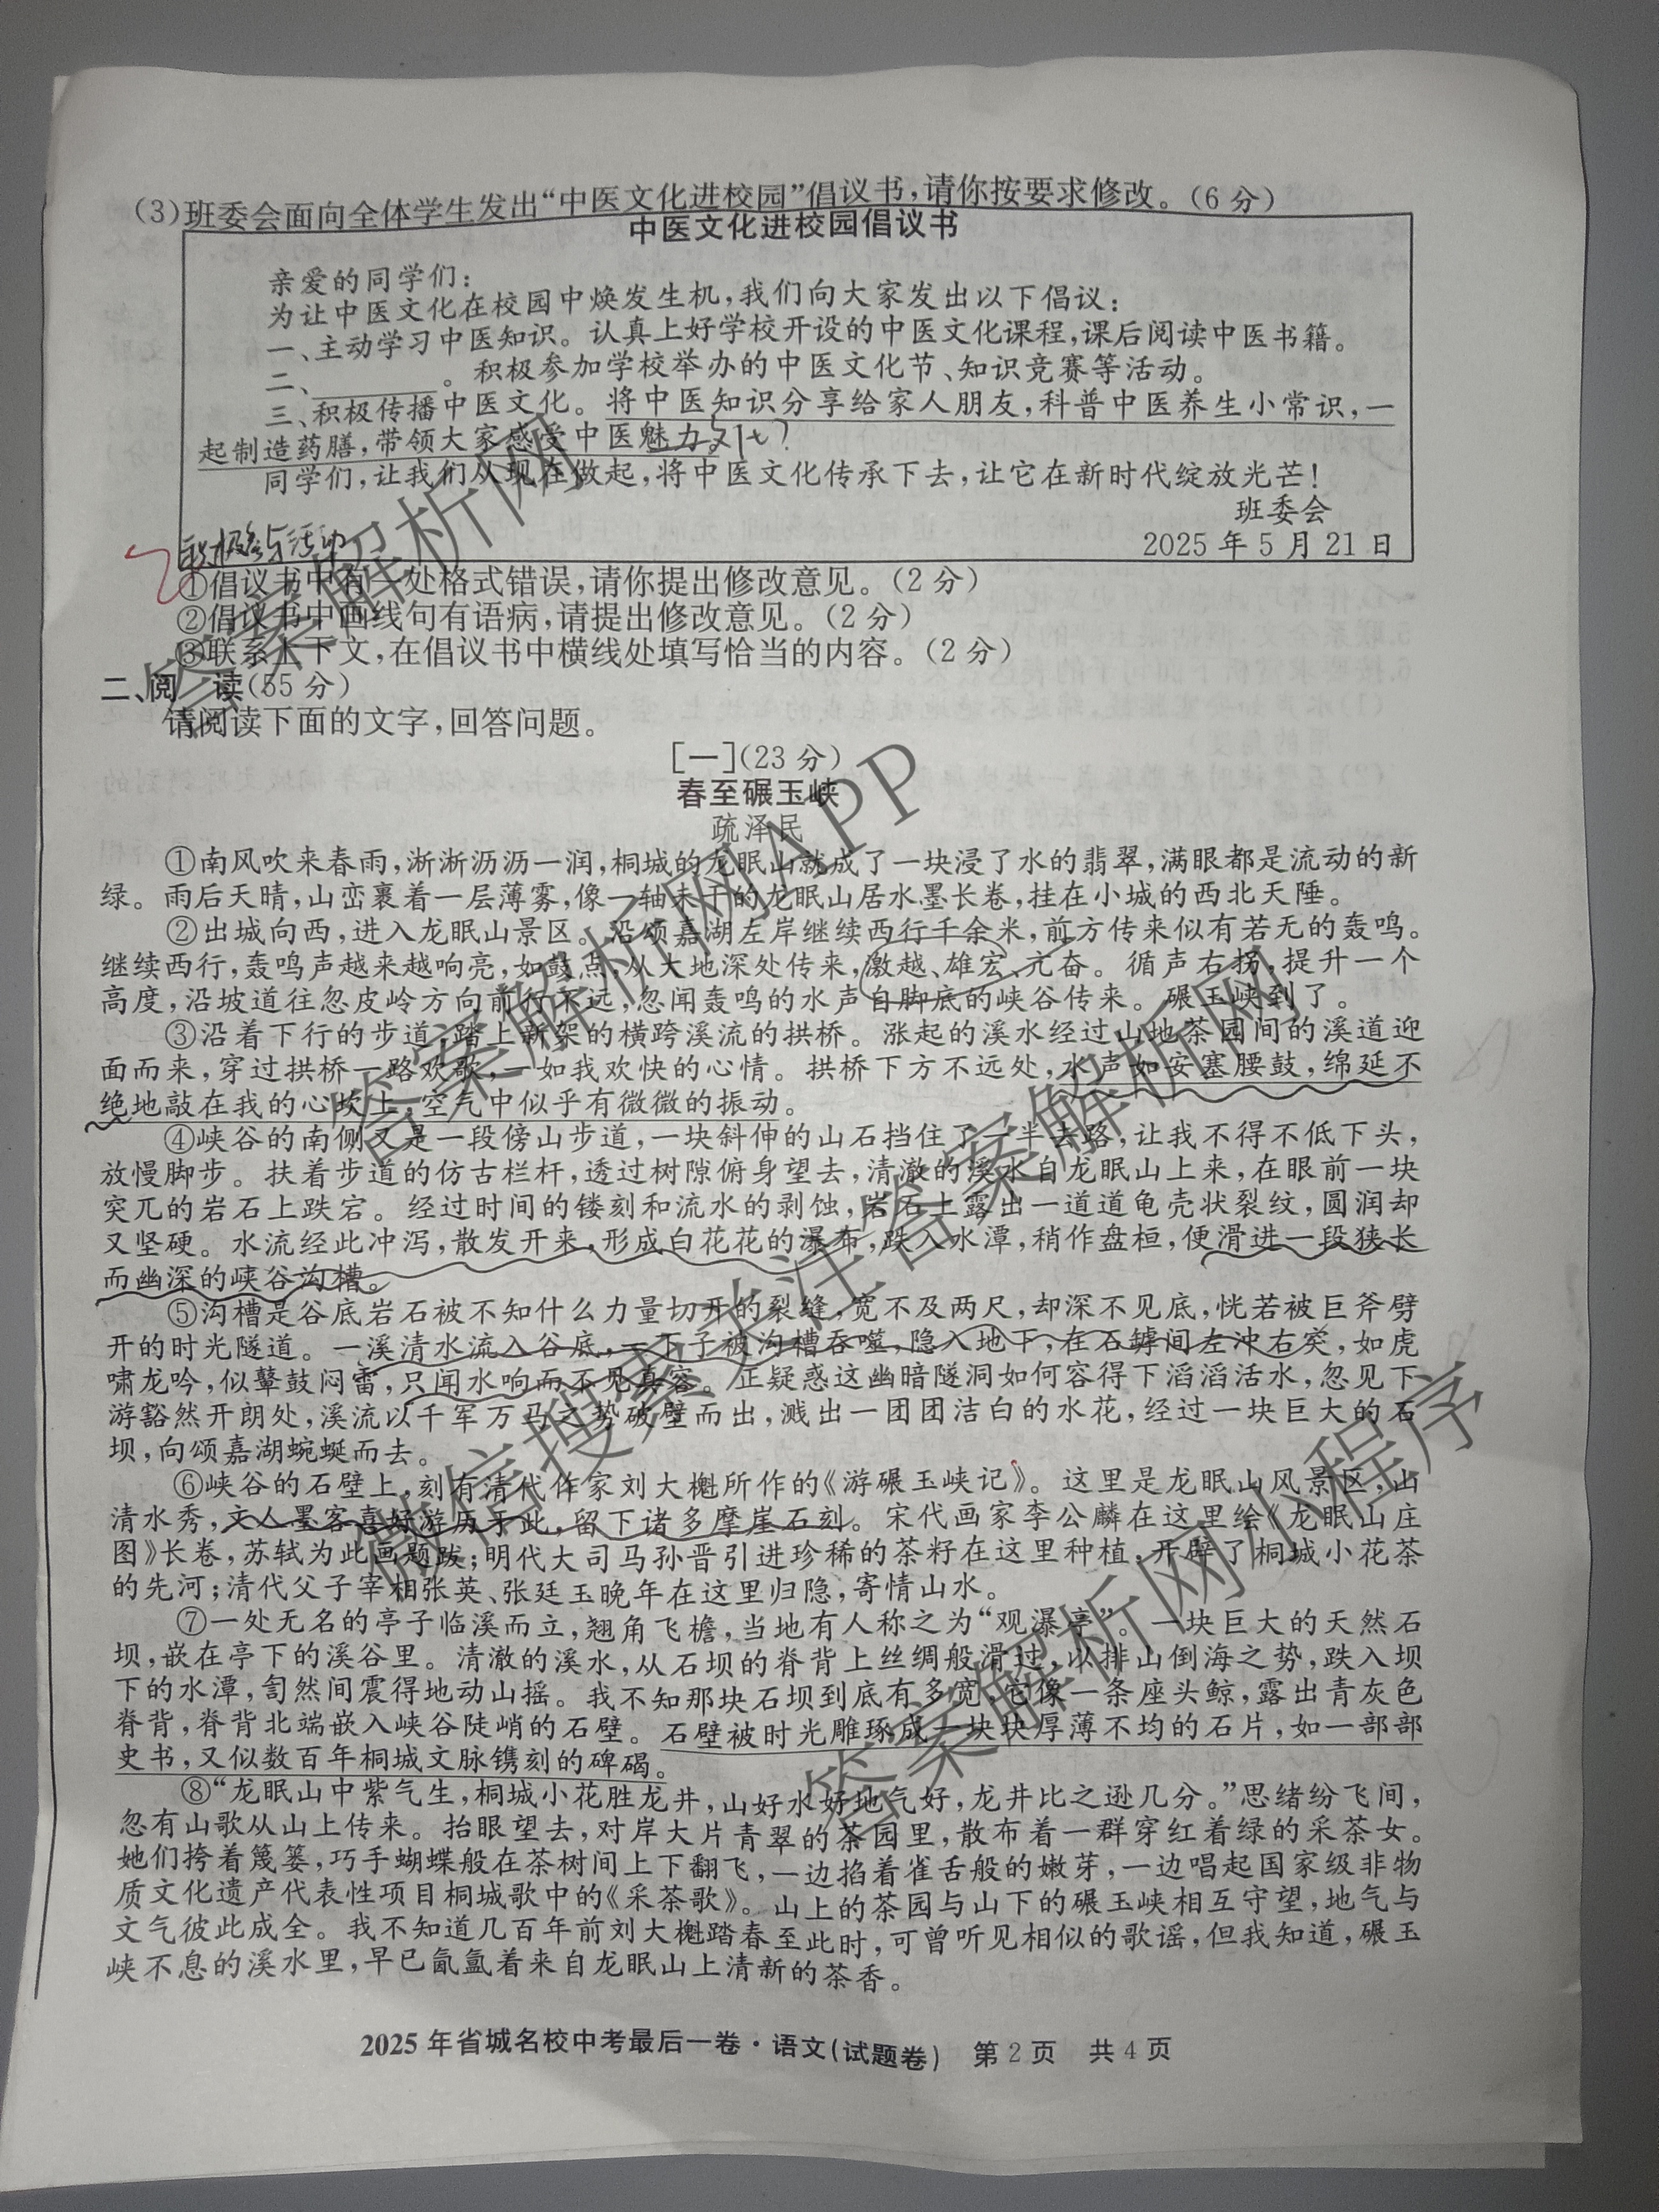 (3)班委会面向全体学生发出“中医文化进校园”倡议书,请你按要求修改。(6分)
中医文化进校园倡议书
亲爱的同学们:
为让中医文化在校园中焕发生机,我们向大家发出以下倡议:
一、主动学习中医知识。认真上好学校开设的中医文化课程,课后阅读中医书籍。
二、________。积极参加学校举办的中医文化节、知识竞赛等活动。
三、积极传播中医文化。将中医知识分享给家人朋友,科普中医养生小常识,一
起制造药膳,带领大家感受中医魅力
同学们,让我们从现在做起,将中医文化传承下去,让它在新时代绽放光芒!
班委会
2025年5月21日
积极参与活动
①倡议书中有一处格式错误,请你提出修改意见。(2分)
②倡议书中画线句有语病,请提出修改意见。(2分)
③联系上下文,在倡议书中横线处填写恰当的内容。(2分)
二、阅 读(55分)
请阅读下面的文字,回答问题。
[一](23分)
春至碾玉峡
疏泽民
①南风吹来春雨,淅淅沥沥一润,桐城的龙眠山就成了一块浸了水的翡翠,满眼都是流动的新
绿。雨后天晴,山峦裹着一层薄雾,像一轴未干的龙眠山居水墨长卷,挂在小城的西北天陲。
②出城向西,进入龙眠山景区。沿颂嘉湖左岸继续西行千余米,前方传来似有若无的轰鸣。
继续西行,轰鸣声越来越响亮,如鼓点,从大地深处传来,激越、雄宏、亢奋。循声右拐,提升一个
高度,沿坡道往忽皮岭方向前行不远,忽闻轰鸣的水声自脚底的峡谷传来。碾玉峡到了。
③沿着下行的步道,踏上新架的横跨溪流的拱桥。涨起的溪水经过山地茶园间的溪道迎
面而来,穿过拱桥一路欢歌,一如我欢快的心情。拱桥下方不远处,水声如安塞腰鼓,绵延不
绝地敲在我的心坎上,空气中似乎有微微的振动。
④峡谷的南侧又是一段傍山步道,一块斜伸的山石挡住了一半去路,让我不得不低下头,
放慢脚步。扶着步道的仿古栏杆,透过树隙俯身望去,清澈的溪水自龙眠山上来,在眼前一块
突兀的岩石上跌宕。经过时间的镂刻和流水的剥蚀,岩石上露出一道道龟壳状裂纹,圆润却
又坚硬。水流经此冲泻,散发开来,形成白花花的瀑布,跌入水潭,稍作盘桓,便滑进一段狭长
而幽深的峡谷沟槽。
⑤沟槽是谷底岩石被不知什么力量切开的裂缝,宽不及两尺,却深不见底,恍若被巨斧劈
开的时光隧道。一溪清水流入谷底,一下子被沟槽吞噬,隐入地下,在石罅间左冲右突,如虎
啸龙吟,似鼙鼓闷雷,只闻水响而不见真容。正疑惑这幽暗隧洞如何容得下滔滔活水,忽见下
游豁然开朗处,溪流以千军万马之势破壁而出,溅出一团团洁白的水花,经过一块巨大的石
坝,向颂嘉湖蜿蜒而去。
⑥峡谷的石壁上,刻有清代作家刘大櫆所作的《游碾玉峡记》。这里是龙眠山风景区,山
清水秀,文人墨客喜好游历于此,留下诸多摩崖石刻。宋代画家李公麟在这里绘《龙眠山庄
图》长卷,苏轼为此画题跋;明代大司马孙晋引进珍稀的茶籽在这里种植,开辟了桐城小花茶
的先河;清代父子宰相张英、张廷玉晚年在这里归隐,寄情山水。
⑦一处无名的亭子临溪而立,翘角飞檐,当地有人称之为“观瀑亭”。一块巨大的天然石
坝,嵌在亭下的溪谷里。清澈的溪水,从石坝的脊背上丝绸般滑过,以排山倒海之势,跌入坝
下的水潭,訇然间震得地动山摇。我不知那块石坝到底有多宽,它像一条座头鲸,露出青灰色
脊背,脊背北端嵌入峡谷陡峭的石壁。石壁被时光雕琢成一块块厚薄不均的石片,如一部部
史书,又似数百年桐城文脉镌刻的碑碣。
⑧“龙眠山中紫气生,桐城小花胜龙井,山好水好地气好,龙井比之逊几分。”思绪纷飞间,
忽有山歌从山上传来。抬眼望去,对岸大片青翠的茶园里,散布着一群穿红着绿的采茶女。
她们挎着篾篓,巧手蝴蝶般在茶树间上下翻飞,一边掐着雀舌般的嫩芽,一边唱起国家级非物
质文化遗产代表性项目桐城歌中的《采茶歌》。山上的茶园与山下的碾玉峡相互守望,地气与
文气彼此成全。我不知道几百年前刘大櫆踏春至此时,可曾听见相似的歌谣,但我知道,碾玉
峡不息的溪水里,早已氤氲着来自龙眠山上清新的茶香。
2025年省城名校中考最后一卷·语文(试题卷) 第2页 共4页
答案解析网
答案解析网APP
微信搜索关注答案解析网
答案解析网小程序